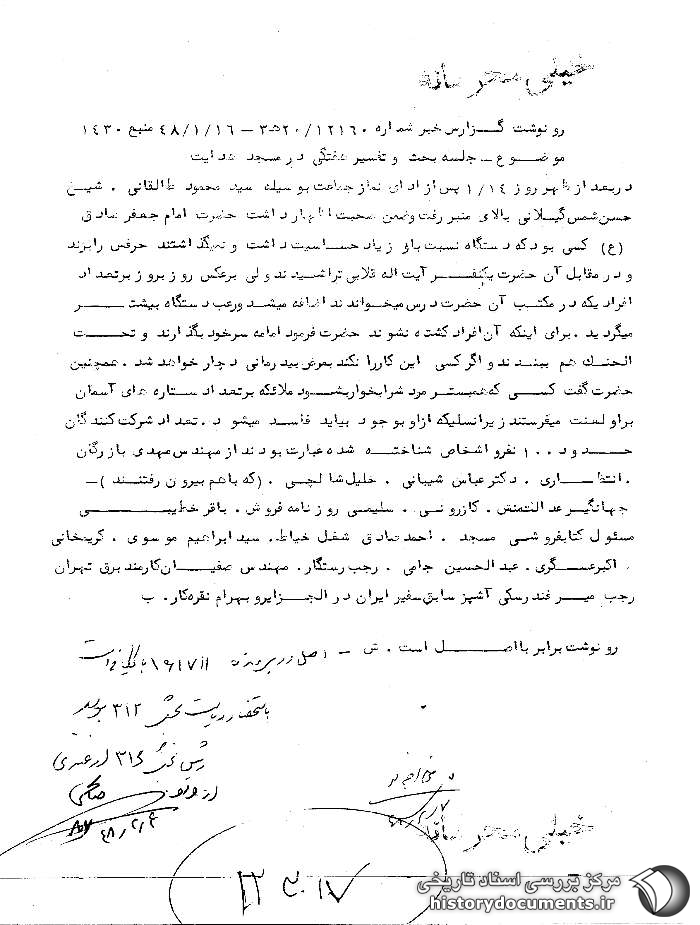 خیلی محرمانه
رونوشت گزارش خبر شماره ۱۲۱۶۰/۲۰ه۳ - ۴۸/۱/۱۶ منبع ۱۴۳۰
موضوع - جلسه بحث و تفسیر هفتگی در مسجد هدایت
دربعد از ظهر روز ۱/۱۴ پس از ادای نماز جماعت بوسیله سید محمود طالقانی . شیخ
حسن شمس گیلانی بالای منبر رفت وضمن صحبت اظهار داشت حضرت امام جعفر صادق
(ع) کسی بود که دستگاه نسبت باو زیاد حساسیت داشت و نمیگذاشتند حرفش رابزند
و در مقابل آن حضرت یکنفر آیت اله قلابی تراشیدند ولی برعکس روز بروز برتعداد
افرادیکه در مکتب آن حضرت درس میخواندند اضافه میشد ورعب دستگاه بیشتر
میگردید . برای اینکه آن افراد کشته نشوند حضرت فرمود امامه سرخود بگذارند و تحت
الحنك هم ببندند و اگر کسی این کاررا نکند بمرض بیدرمانی دچار خواهد شد . همچنین
حضرت گفت کسی که همبستر مرد شرابخوار بشود ملائکه برتعداد ستاره های آسمان
براو لعنت میفرستند زیرا نسلیکه ازاو بوجود بیاید فاسد میشود . تعداد شرکت کنندگان
حدود ۱۰۰ نفرو اشخاص شناخته شده عبارت بودند از مهندس مهدی بازرگان
. انتظاری . دکتر عباس شیبانی . خلیل شالچی . (که باهم بیرون رفتند) -
جهانگیر عدالتمنش . کازرونی . سلیمی روزنامه فروش . باقر خطیبی
مسئول کتابفروشی مسجد . احمد صادق شغل خیاط . سید ابراهیم موسوی . کریمخانی
. اکبر عسگری . عبدالحسین جامی . رجب رستگار . مهندس صفیان کارمند برق تهران
رجب میرفندرسکی آشپز سابق سفیر ایران در الجزایرو بهرام نقره کار . ب
رونوشت برابر با اصل است . ش - اصل در پرونده
بخش ۳۱۲
رئیس بخش ۳۱۶
۴۸/۲/۴
خیلی محرمانه
مرکز بررسی اسناد تاریخی
historydocuments.ir